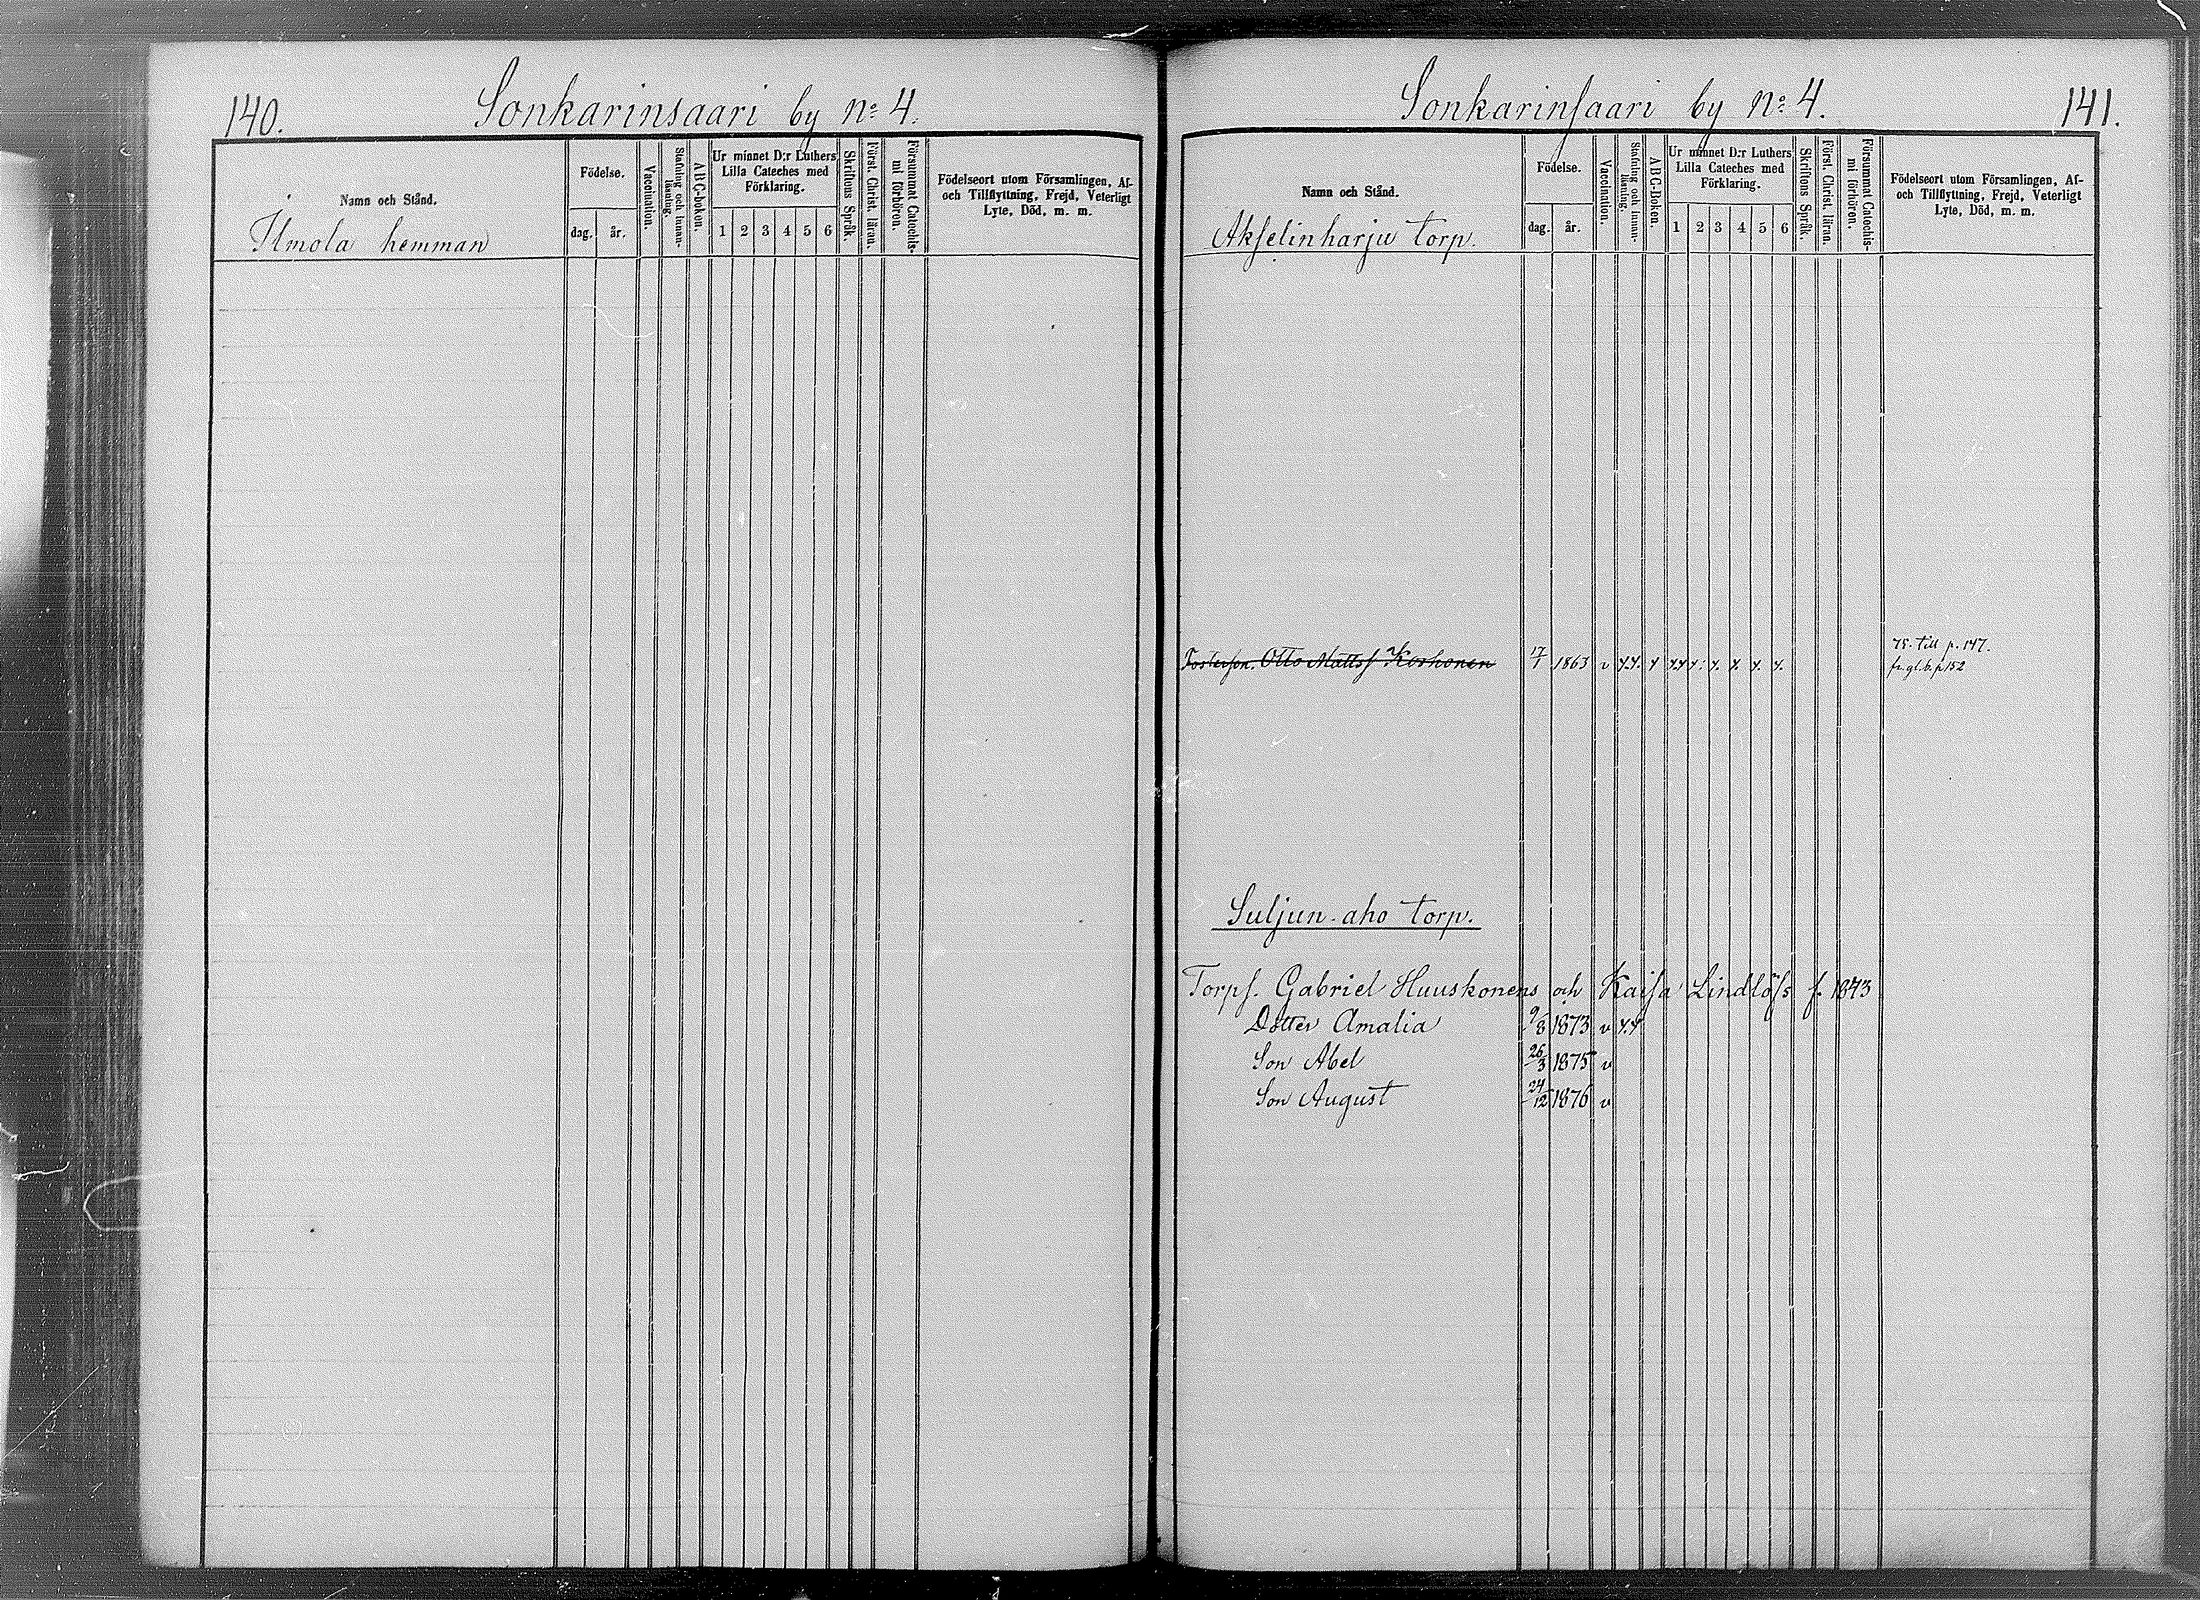 140.
Sonkarinsaari by No: 4.
Namn och Stånd.
Ilmola hemman
Födelse.
dag. år.
Vaccination.
Stafning och innan-
läsning.
A B C-boken.
Ur minnet D:r Luthers
Lilla Cateches med
Förklaring.
1 2 3 4 5 6
Skriftens Språk.
Först. Christ. läran.
Försummat Catechis-
mi förhören.
Födelseort utom Församlingen, Af-
och Tillflyttning, Frejd, Veterligt
Lyte, Död, m. m.
Sonkarinsaari by No: 4.
141.
Namn och Stånd.
Akselinharju torp.
Födelse.
dag. år.
Vaccination.
Stafning och innan-
läsning.
A B C-boken.
Ur minnet D:r Luthers
Lilla Cateches med
Förklaring.
1 2 3 4 5 6
Skriftens Språk.
Först. Christ. läran.
Försummat Catechis-
mi förhören.
Födelseort utom Församlingen, Af-
och Tillflyttning, Frejd, Veterligt
Lyte, Död, m. m.
75. till p. 147.
Fosterson. Otto Mattss Korhonen 17/1 1863 v fr. gl. b. p 152
Suljun-aho torp.
Torps. Gabriel Huuskonens och Kaisa Lindlöfs f. 1843
Dotter Amalia 9/8 1873 v
Son Abel 26/3 1875 v
Son August 24/12 1876 v